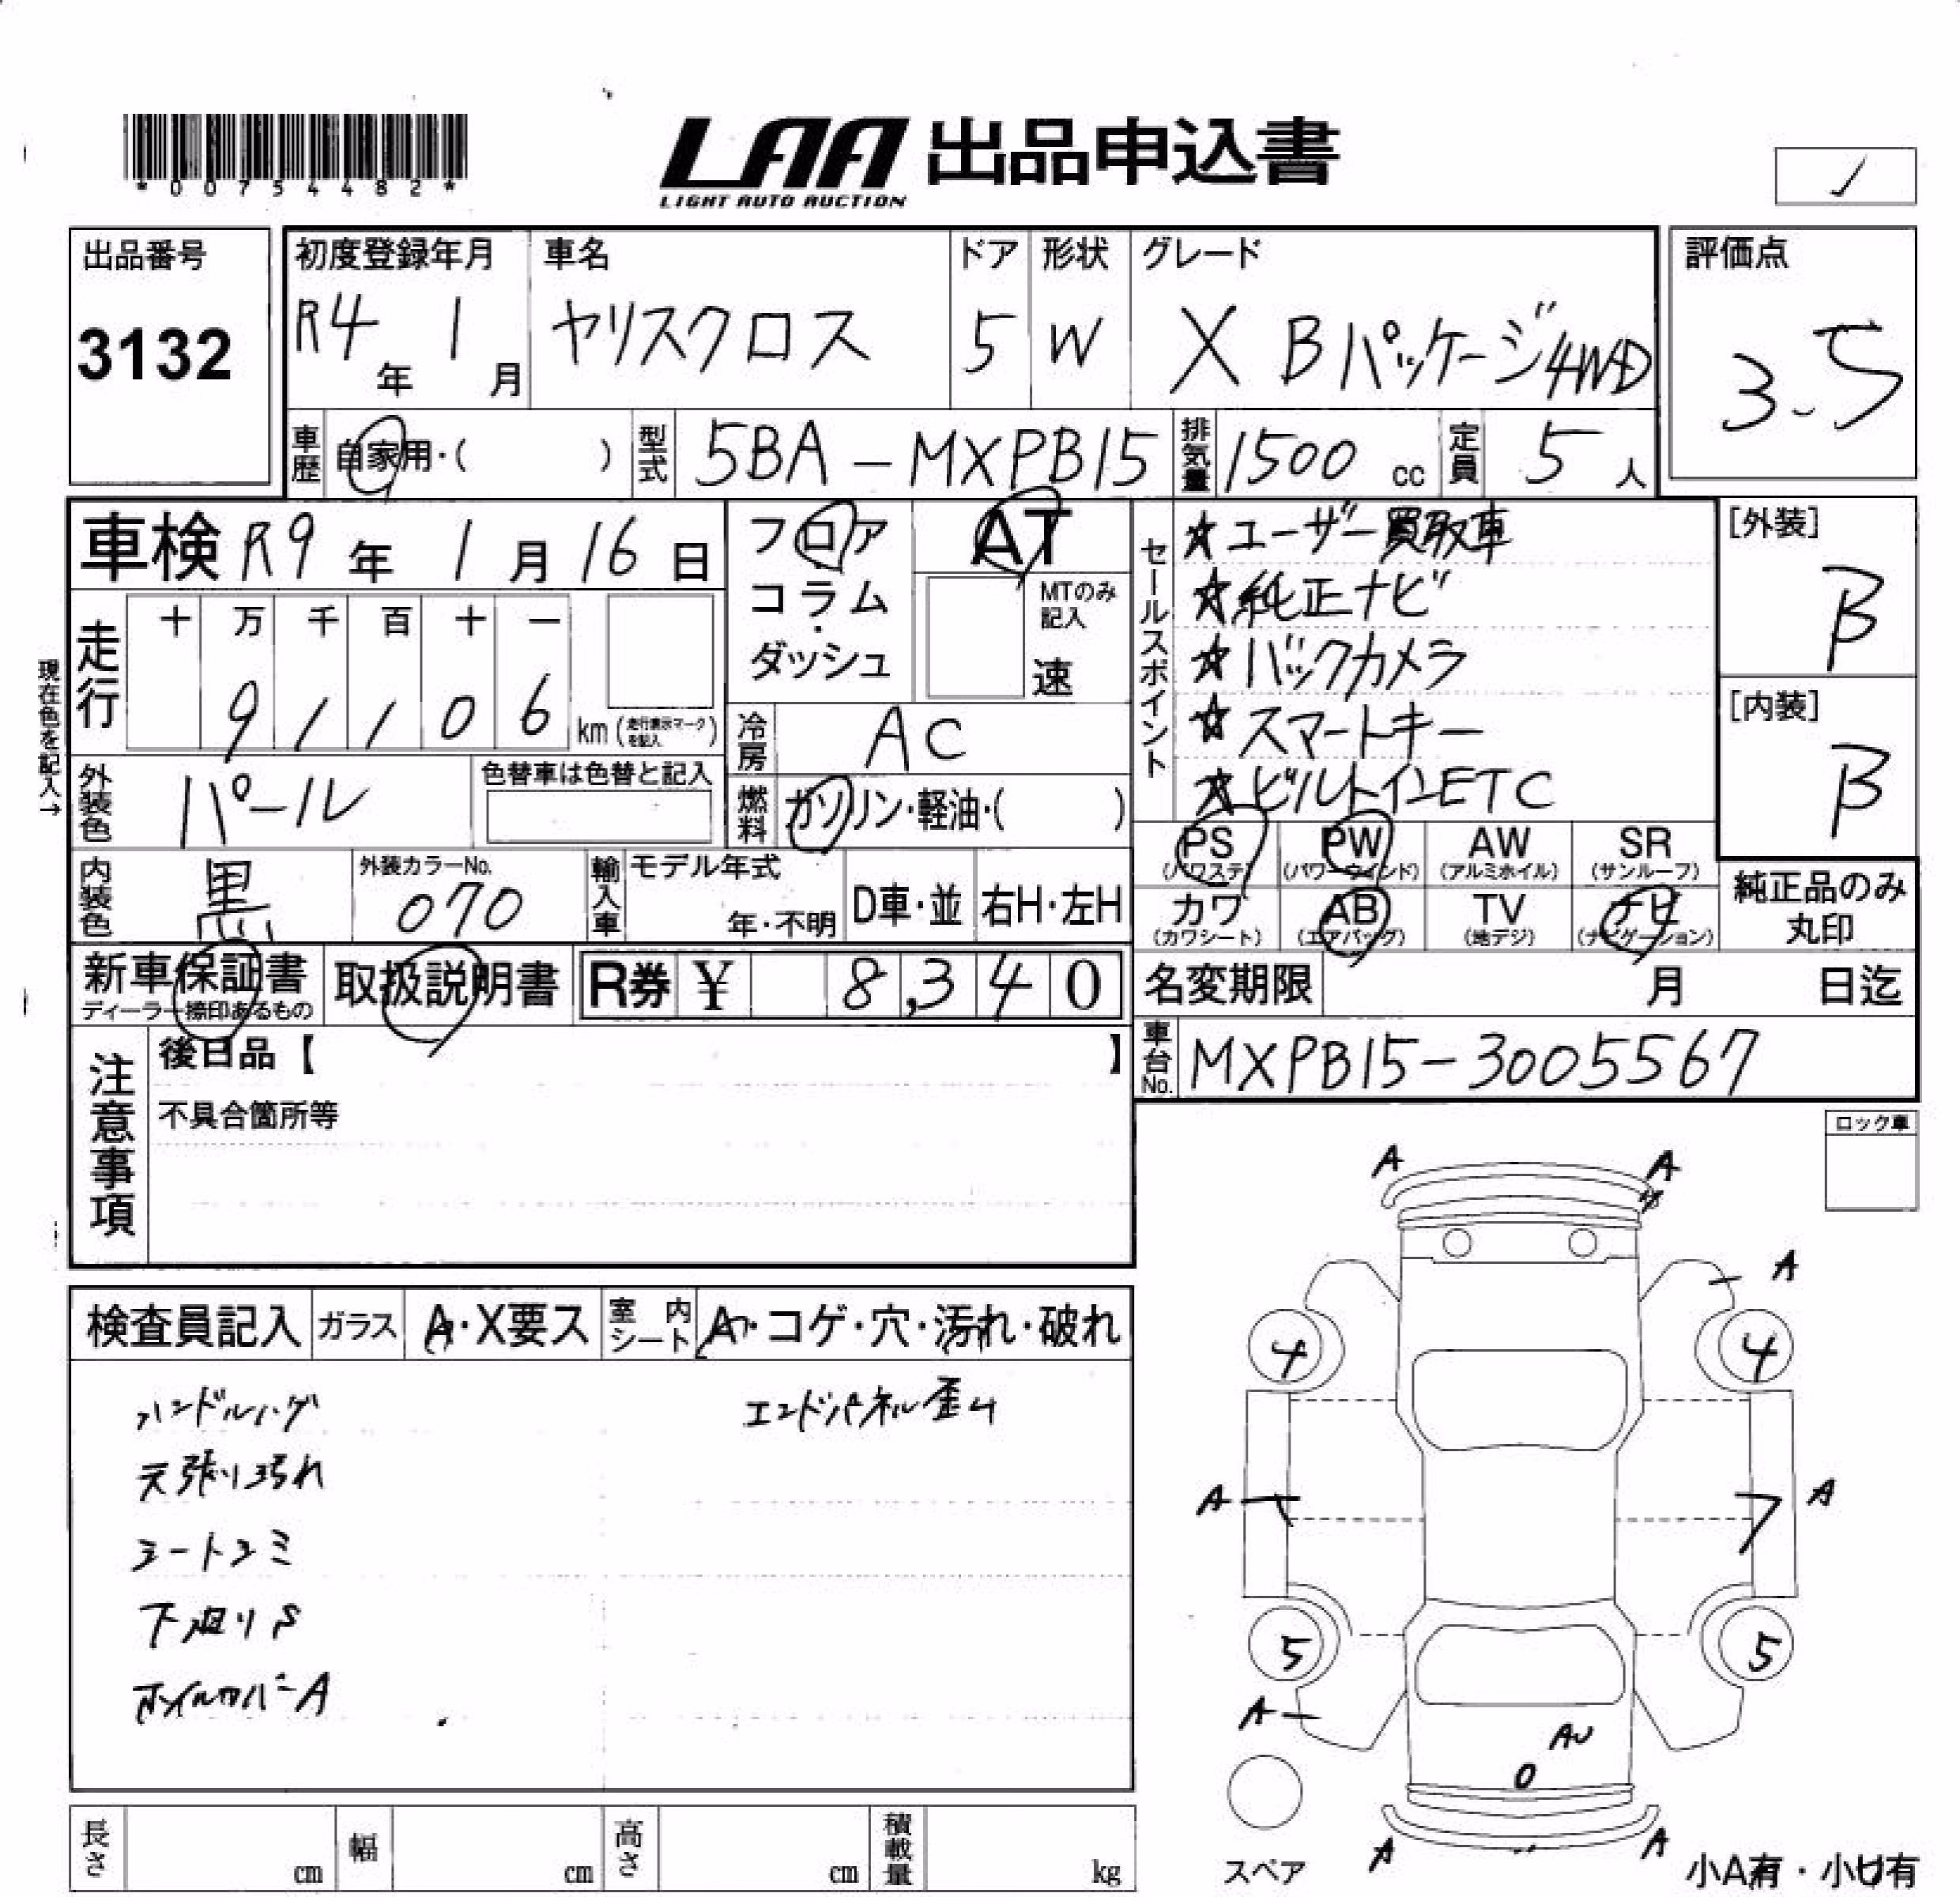 *00754482*
LAA 出品申込書
LIGHT AUTO AUCTION
出品番号
3132
初度登録年月
R4年 1月
車名
ヤリスクロス
ドア
5
形状
W
グレード
X Bパッケージ4WD
評価点
3.5
車歴
自家用・( )
型式
5BA-MXPB15
排気量
1500 cc
定員
5人
車検 R9年 1月 16日
フロア
コラム
・
ダッシュ
AT
MTのみ
記入
速
セールスポイント
★ユーザー買取車
★純正ナビ
★バックカメラ
★スマートキー
★ビルトインETC
[外装]
B
[内装]
B
現在色を記入→
走行
十 万 千 百 十 一
9 1 1 0 6 km (走行表示マークを記入)
冷房
AC
外装色
パール
色替車は色替と記入
燃料
ガソリン・軽油・( )
PS (パワステ)
PW (パワーウィンド)
AW (アルミホイル)
SR (サンルーフ)
カワ (カワシート)
AB (エアバッグ)
TV (地デジ)
ナビ (ナビゲーション)
純正品のみ
丸印
内装色
黒
外装カラーNo.
070
輸入車
モデル年式
年・不明
D車・並
右H・左H
新車保証書
ディーラー捺印あるもの
取扱説明書
R券 ¥ 8,340
名変期限 月 日迄
注意事項
後日品【 】
不具合箇所等
車台No.
MXPB15-3005567
ロック車
検査員記入
ガラス
A・X要ス
室内シート
A・コゲ・穴・汚れ・破れ
ハンドルハゲ
天張り汚れ
シートシミ
下廻りS
ホイルカバーA
エンドパネル歪ム
A A
A
4 4
A A
5 5
A
AU
0
A A
スペア
小A有・小U有
長さ cm
幅 cm
高さ cm
積載量 kg